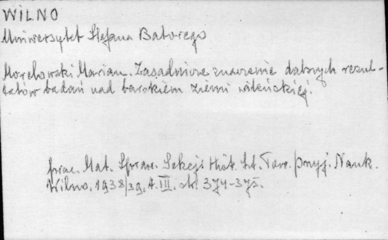 WILNO
Uniwersytet Stefana Batorego
Morelowski Marian. Zasadnicze znaczenie dalszych rezul-
tatów badań nad barokiem ziemi wileńskiej.
prac. Mat. Spraw. Sekcji Hist. Szt. Tow. przyj. Nauk.
Wilno. 1938/39. t. III. str. 374-375.